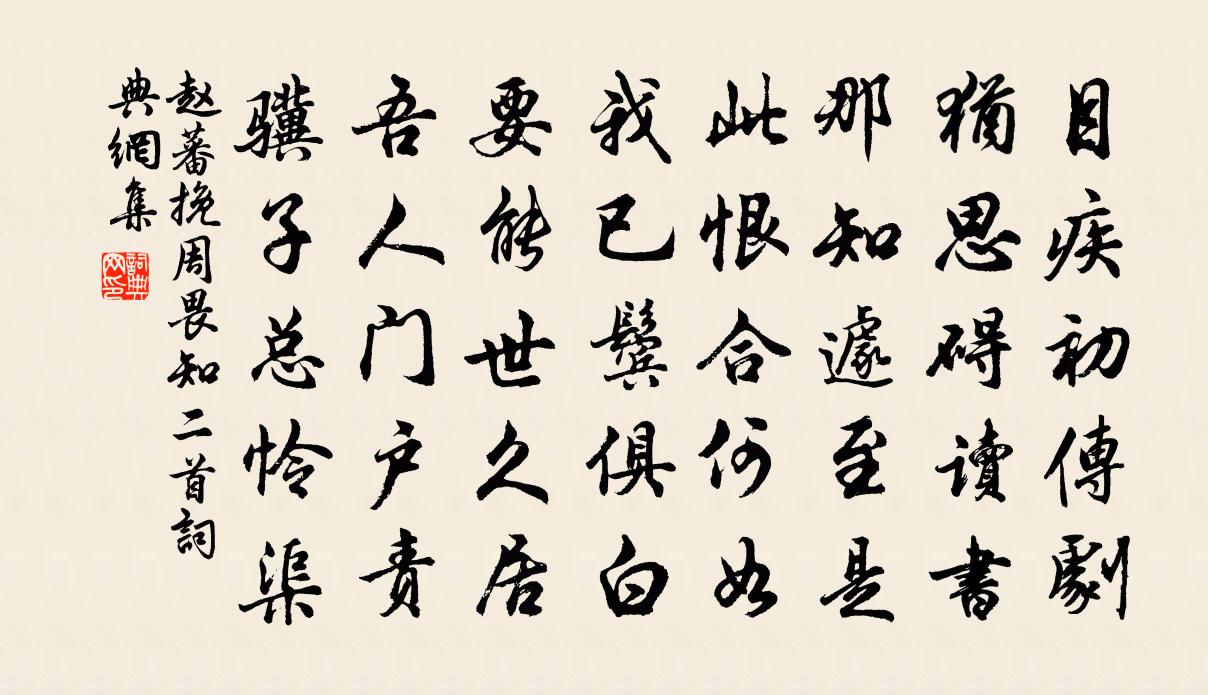 目疾初傳劇
猶思碍讀書
那知遽至是
此恨合何如
我已鬓俱白
要能世久居
吾人门户责
骥子总怜渠
赵蕃挽周畏知二首詞
典網集
詞典
网印